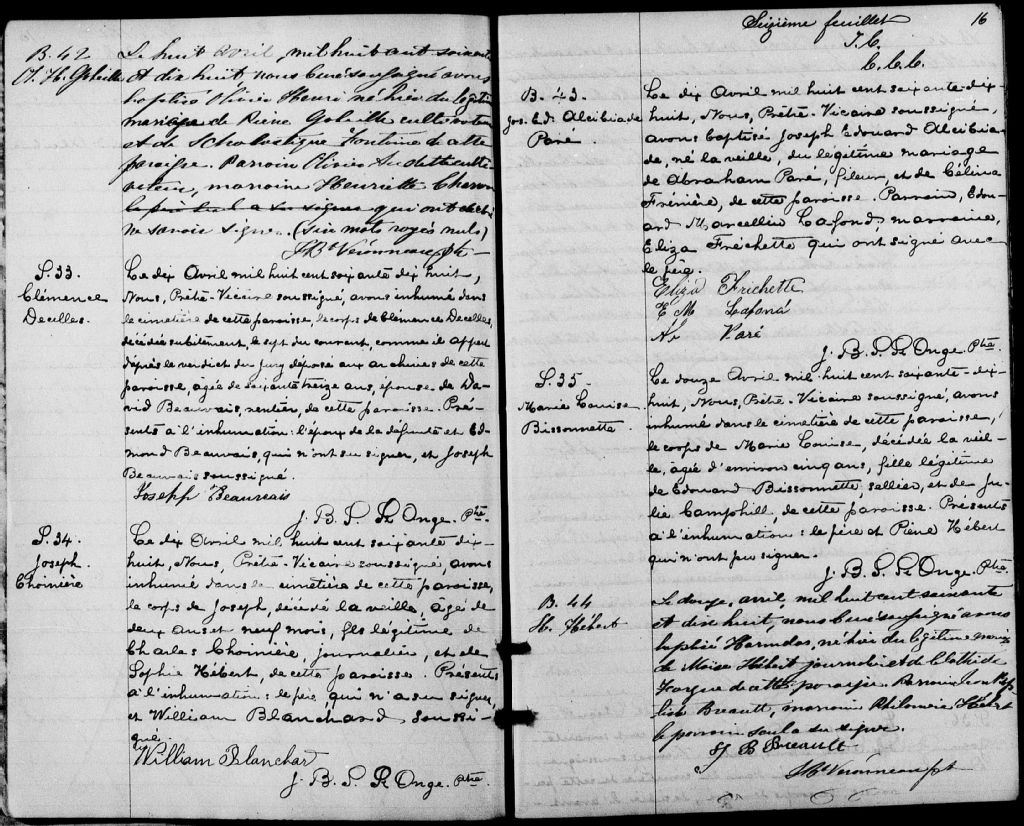 B. 42
O. H. Goheille
Le huit avril, mil huit cent soixante
et dix huit nous curé soussigné avons
baptisé Olivier Henri né hier du légitime
mariage de Pierre Goheille cultivateur
et de Scholastique Fontaine de cette
paroisse. Parrain Olivier
marraine Henriette Charron
le père
ne savoir signer. (Six mots rayés nuls)
J Bte Véronneau ptr
S. 33
Clémence
Decelles.
Le dix Avril mil huit cent soixante dix huit,
Nous, Prêtre-Vicaire soussigné, avons inhumé dans
le cimetière de cette paroisse, le corps de Clémence Decelles,
décédée subitement, le sept du courant, comme il appert
d'après le verdict du Jury déposé aux archives de cette
paroisse, agée de soixante treize ans, épouse de Da-
vid Beauvais, rentier, de cette paroisse. Pré-
sents à l'inhumation: l'époux de la défunte et Ed-
mond Beauvais, qui n'ont su signer, et Joseph
Beauvais soussigné.
Joseph Beauvais
J. B. S. St Onge. Ptre
S. 34
Joseph
Choinière
Le dix Avril mil huit cent soixante dix-
huit, Nous, Prêtre-Vicaire soussigné, avons
inhumé dans le cimetière de cette paroisse,
le corps de Joseph, décédé la veille, agé de
deux ans et neuf mois, fils légitime de
Charles Choinière, journalier, et de
Sophie Hébert, de cette paroisse. Présents
à l'inhumation: le père, qui n'a su signer,
et William Blanchard soussi-
gné.
William Blanchar
J. B. S. St Onge. Ptre
Seizième feuillet 16
J. C.
C. C. C.
B. 43.
Jos. Ed. Alcibiade
Paré
Le dix Avril mil huit cent soixante-dix-
huit, Nous, Prêtre-Vicaire soussigné,
avons baptisé Joseph Edouard Alcibia-
de, né la veille, du légitime mariage
de Abraham Paré, fileur, et de Célina
Frénière, de cette paroisse. Parrain, Edou-
ard Marcellin Lafond, marraine,
Eliza Fréchette qui ont signé avec
le père.
Eliza Frichette
E M Lafond
Ab Paré
J. B. S. St Onge. Ptre
S. 35 -
Marie Louise
Bissonnette
Le douze Avril mil huit cent soixante-dix-
huit, Nous, Prêtre-Vicaire soussigné, avons
inhumé dans le cimetière de cette paroisse,
le corps de Marie Louise, décédée la veil-
le, agée d'environ cinq ans, fille légitime
de Edouard Bissonnette, sellier, et de Ju-
lie Camphill, de cette paroisse. Présents
à l'inhumation: le père et Pierre Hébert
qui n'ont pu signer.
J. B. S. St Onge. Ptre
B. 44
H. Hébert
Le douze, avril, mil huit cent soixante
et dix huit, nous curé soussigné avons
baptisé Hormidas, né hier du légitime mariage
de Moïse Hébert journalier et de Clothilde
Forgue de cette paroisse Parrain Jean Bap-
tiste Breault, marraine Philomène Hébert
le parrain seul a su signer.
J B Breault
J Bte Véronneau ptr